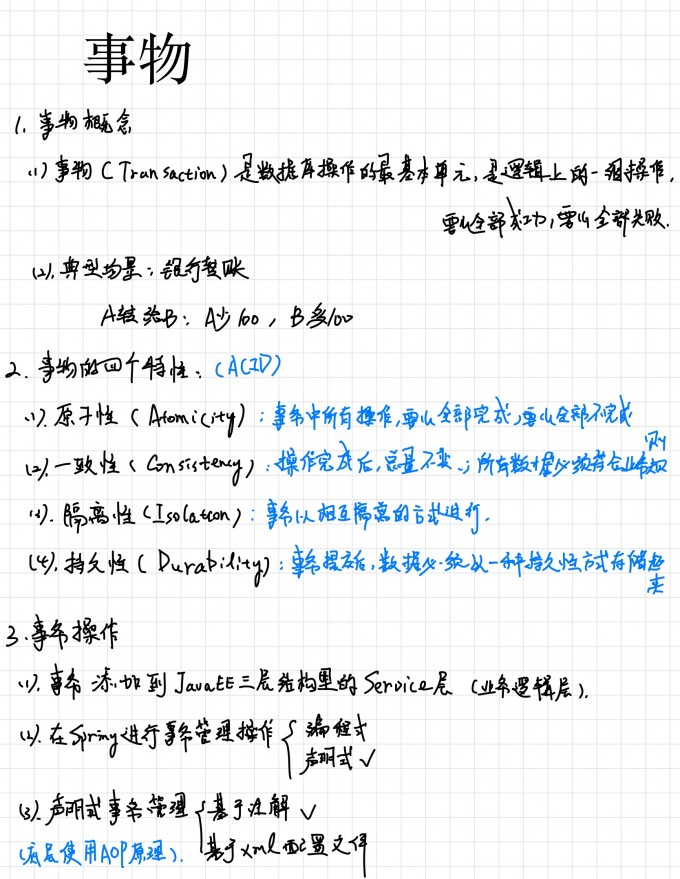 事物
1. 事物概念
(1) 事物 (Transaction) 是数据库操作的最基本单元, 是逻辑上的一组操作,
要么全部成功, 要么全部失败.
(2). 典型场景: 银行转账
A转给B: A少100, B多100
2. 事物的四个特性: (ACID)
(1). 原子性 (Atomicity): 事务中所有操作, 要么全部完成, 要么全部不完成
(2). 一致性 (Consistency): 操作完成后, 总量不变.; 所有数据必须符合业务规则
(3). 隔离性 (Isolation): 事务以相互隔离的方式进行.
(4). 持久性 (Durability): 事务提交后, 数据必须以一种持久性方式存储起来
3. 事务操作
(1). 事务添加到JavaEE三层结构里的Service层 (业务逻辑层).
(2). 在Spring进行事务管理操作 { 编程式
声明式 ✓
(3). 声明式事务管理 { 基于注解 ✓
(底层使用AOP原理). 基于xml配置文件